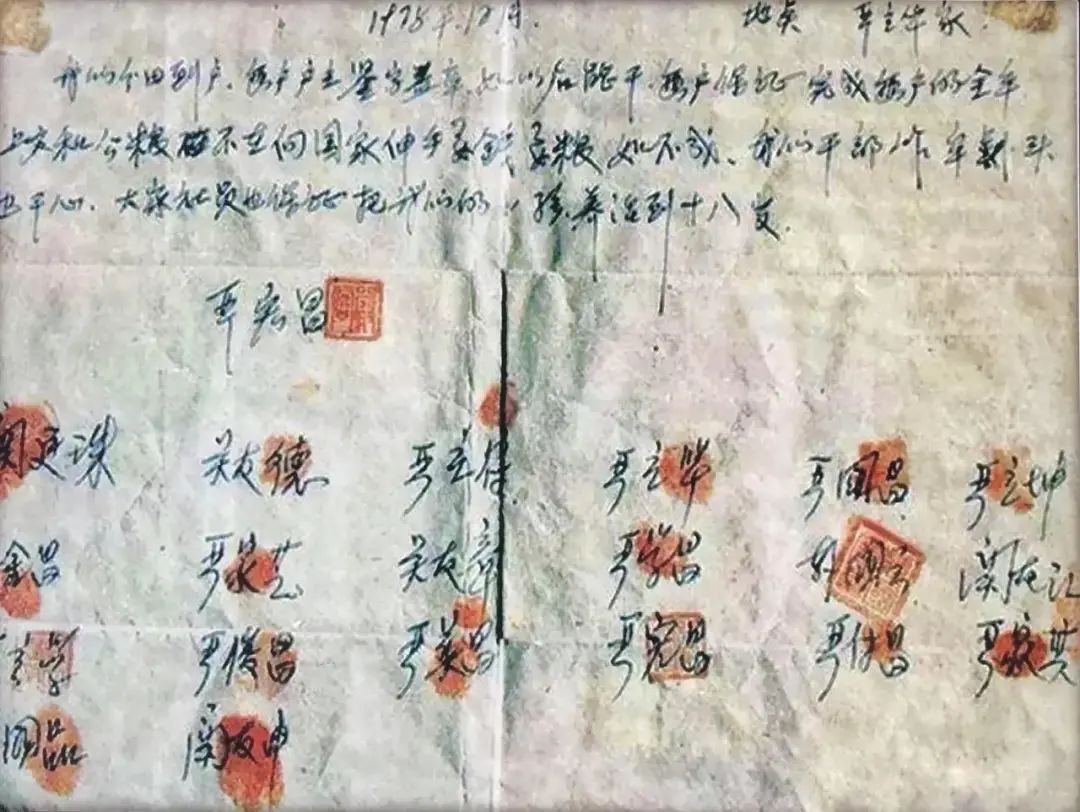 1978年12月. 地点 严立华家.
我们分田到户.每户户主鉴字盖章.如以后能干.每户保证完成每户的全年
上交和公粮 不在向国家伸手要钱要粮 如不成.我们干部作牢刹头
也干心.大家社员也保证把我们的小孩养活到十八岁.
严宏昌
关廷珠 关友德 严立符 严立华 严国昌 严立坤
金昌 严家芝 关友章 严学昌 韩国云 关友江
立学 严俊昌 严美昌 严宏昌 严付昌 严家其
国品 关友申